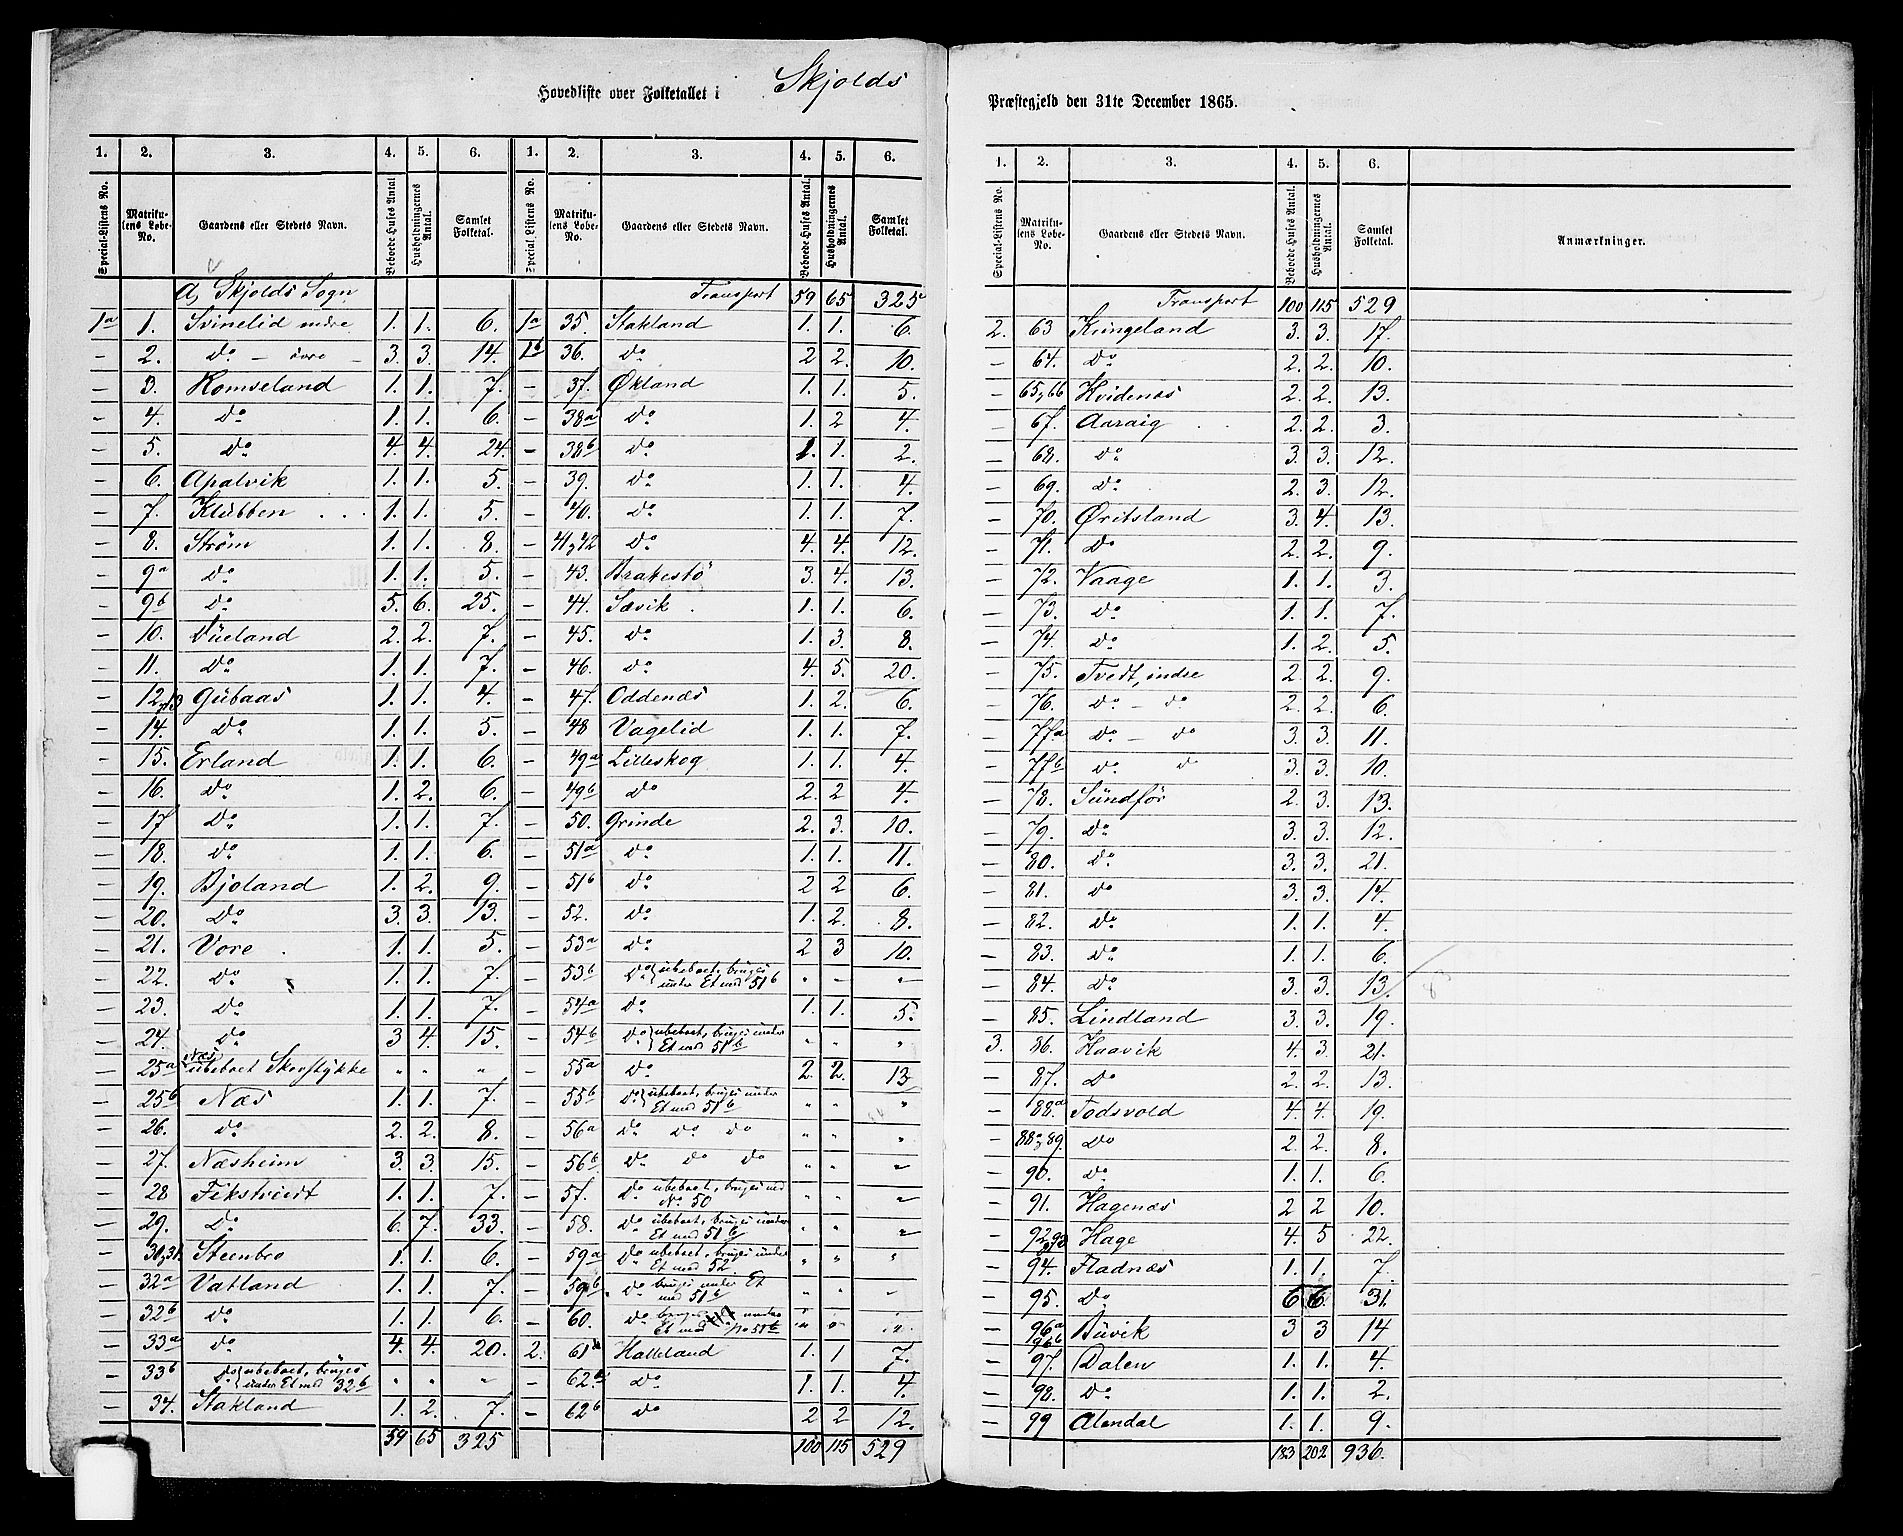 Hovedliste over Folketallet i Skjolds
Præstegjeld den 31te December 1865.
1. 2. 3. 4. 5. 6. 1. 2. 3. 4. 5. 6.
Special-Listens No. Matrikulens Løbe-No. Gaardens eller Stedets Navn. Beboede Huses Antal. Husholdningernes Antal. Samlet Folketal. Special-Listens No. Matrikulens Løbe-No. Gaardens eller Stedets Navn. Beboede Huses Antal. Husholdningernes Antal. Samlet Folketal.
A, Skjolds Sogn
1a 1. Svinelid indre 1. 1. 6.
- 2. Do - övre - 3. 3. 14.
- 3. Romseland 1. 1. 7.
- 4. Do 1. 1. 6.
- 5. Do 4. 4. 24.
- 6. Apalvik 1. 1. 5.
- 7. Klubben . . . 1. 1. 5.
- 8. Strøm 1. 1. 8.
- 9a Do 1. 1. 5.
- 9b Do 5. 6. 25.
- 10. Dueland 2. 2. 7.
- 11. Do 1. 1. 7.
- 12,13 Gubaas 1. 1. 4.
- 14. Do 1. 1. 5.
- 15. Erland 1. 1. 6.
- 16. Do 1. 2. 6.
- 17 Do 1. 1. 7.
- 18. Do 1. 1. 6.
- 19. Bjoland 1. 2. 9.
- 20. Do 3. 3. 13.
- 21. Vore . 1. 1. 5.
- 22. Do 1. 1. 7.
- 23. Do 1. 1. 7.
- 24. Do 3 4. 15.
- 25a Næs ubeboet Skovstykke " " "
- 25b Næs 1. 1. 7.
- 26. Do 2. 2. 8.
- 27. Næsheim 3. 3. 15.
- 28 Fikstveit 1. 1. 7.
- 29. Do 6. 7. 33.
- 30,31. Steenbro 1. 1. 6.
- 32a Vatland 1. 1. 7.
- 32b Do 1. 1. 6.
- 33a Do 4. 4. 20.
- 33b Do ubeboet, bruges under Et med 32b " " "
- 34. Stakland 1. 2. 7.
59 65 325
Transport 59 65 325
1a 35. Stakland 1. 1. 6.
1b 36. Do 2 2. 10.
- 37. Økland 1. 1. 5.
- 38a Do 1. 2 4.
- 38b Do 1. 1. 2.
- 39. Do 1. 1. 4.
- 40. Do 1. 1. 7.
- 41,42 Do 4. 4. 12.
- 43. Brakestö 3. 4. 13.
- 44. Sævik . 1. 1. 6.
- 45. Do 1. 3. 8.
- 46. Do 4. 5. 20.
- 47. Oddenæs 1. 2. 6.
- 48 Vagelid 1. 1. 7.
- 49a Lilleskog 1. 1. 4.
- 49b Do 2. 2 4.
- 50. Grinde 2. 3. 10.
- 51a Do 1. 1. 11.
- 51b Do 2 2 6.
- 52. Do 1. 2. 8.
- 53a Do 2 3 10.
- 53b Do ubeboet, bruges under Et med 51b " - "
- 54a Do 1. 1. 5.
- 54b Do ubeboet, bruges under Et med 51b " " "
- 55a Do 2. 2. 13
- 55b Do ubeboet, bruges under Et med 51b " " "
- 56a Do Do Do " " "
- 56b Do Do Do " " "
- 57. Do ubeboet, bruges med No. 50 " " "
- 58. Do ubeboet, bruges under Et med 51b " " "
- 59a Do ubeboet, bruges under Et med 52 " " "
- 59b Do bruges under Et med 51b " " "
- 60. Do bruges under Et med No 51b " " "
2. 61 Halleland 1. 1 7.
- 62a Do 1. 1. 4.
- 62b Do 2 2 12.
100 115 529
1. 2. 3. 4. 5. 6.
Special-Listens No. Matrikulens Løbe-No. Gaardens eller Stedets Navn. Beboede Huses Antal. Husholdningernes Antal. Samlet Folketal. Anmærkninger.
Transport 100 115 529
2. 63 Kringeland 3. 3. 17.
- 64. Do 2. 2. 10.
- 65,66 Hvidenæs 2. 2. 13.
- 67. Aaraig . . 2. 2. 3.
- 68. Do 3. 3. 12.
- 69. Do 2. 3. 12.
- 70. Øritsland 3. 4. 13.
- 71. Do 2. 2. 9.
- 72. Vaage 1. 1. 3.
- 73. Do 1. 1. 7.
- 74. Do 1. 2. 5.
- 75. Tvedt, indre 2. 2. 9.
- 76. Do - do 2. 2. 6.
- 77a Do - do 3. 3. 11.
- 77b Do do 3. 3. 10.
- 78. Sundfør 2. 3. 13.
- 79. Do 3. 3. 12.
- 80. Do 3. 3. 21.
- 81. Do 3. 3. 14.
- 82. Do 1. 1. 4.
- 83. Do 1. 1. 6.
- 84. Do 3. 3. 13.
- 85. Lindland 3. 3. 19.
3. 86. Haavik 4. 3. 21.
- 87. Do 2. 2. 13.
- 88a Todsvold 4. 4. 19.
- 88a,89. Do 2. 2. 8.
- 90. Do 1. 1. 6.
- 91. Hagenæs 2 2 10.
- 92,93 Hage 4. 5 22.
- 94. Fladnæs 1. 1. 7.
- 95. Do 6 6. 31.
- 96a 96b Buvik 3 3 14
- 97. Dalen 1. 1. 4.
- 98. Do 1. 1. 2.
- 99 Alendal 1. 1. 9.
183 202 936.